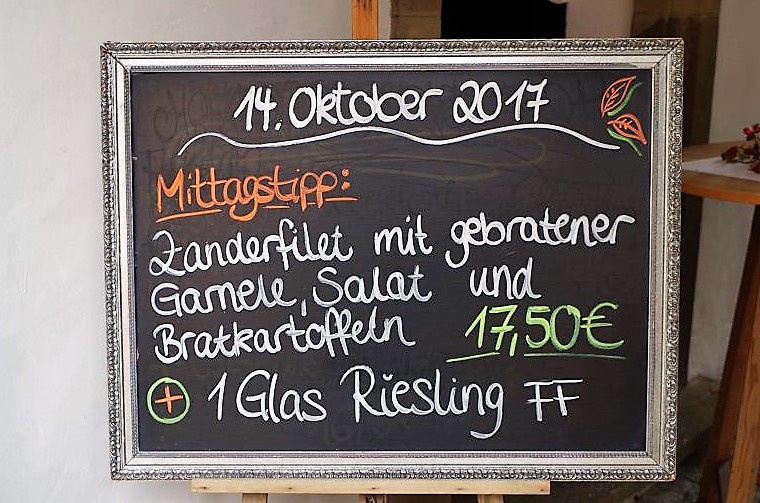 14. Oktober 2017
Mittagstipp:
Zanderfilet mit gebratener
Garnele, Salat und
Bratkartoffeln 17,50€
+ 1 Glas Riesling FF